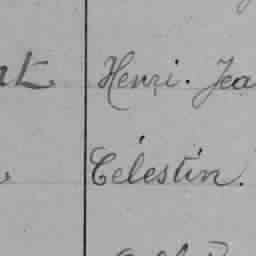 Henri. Jea
Célestin.